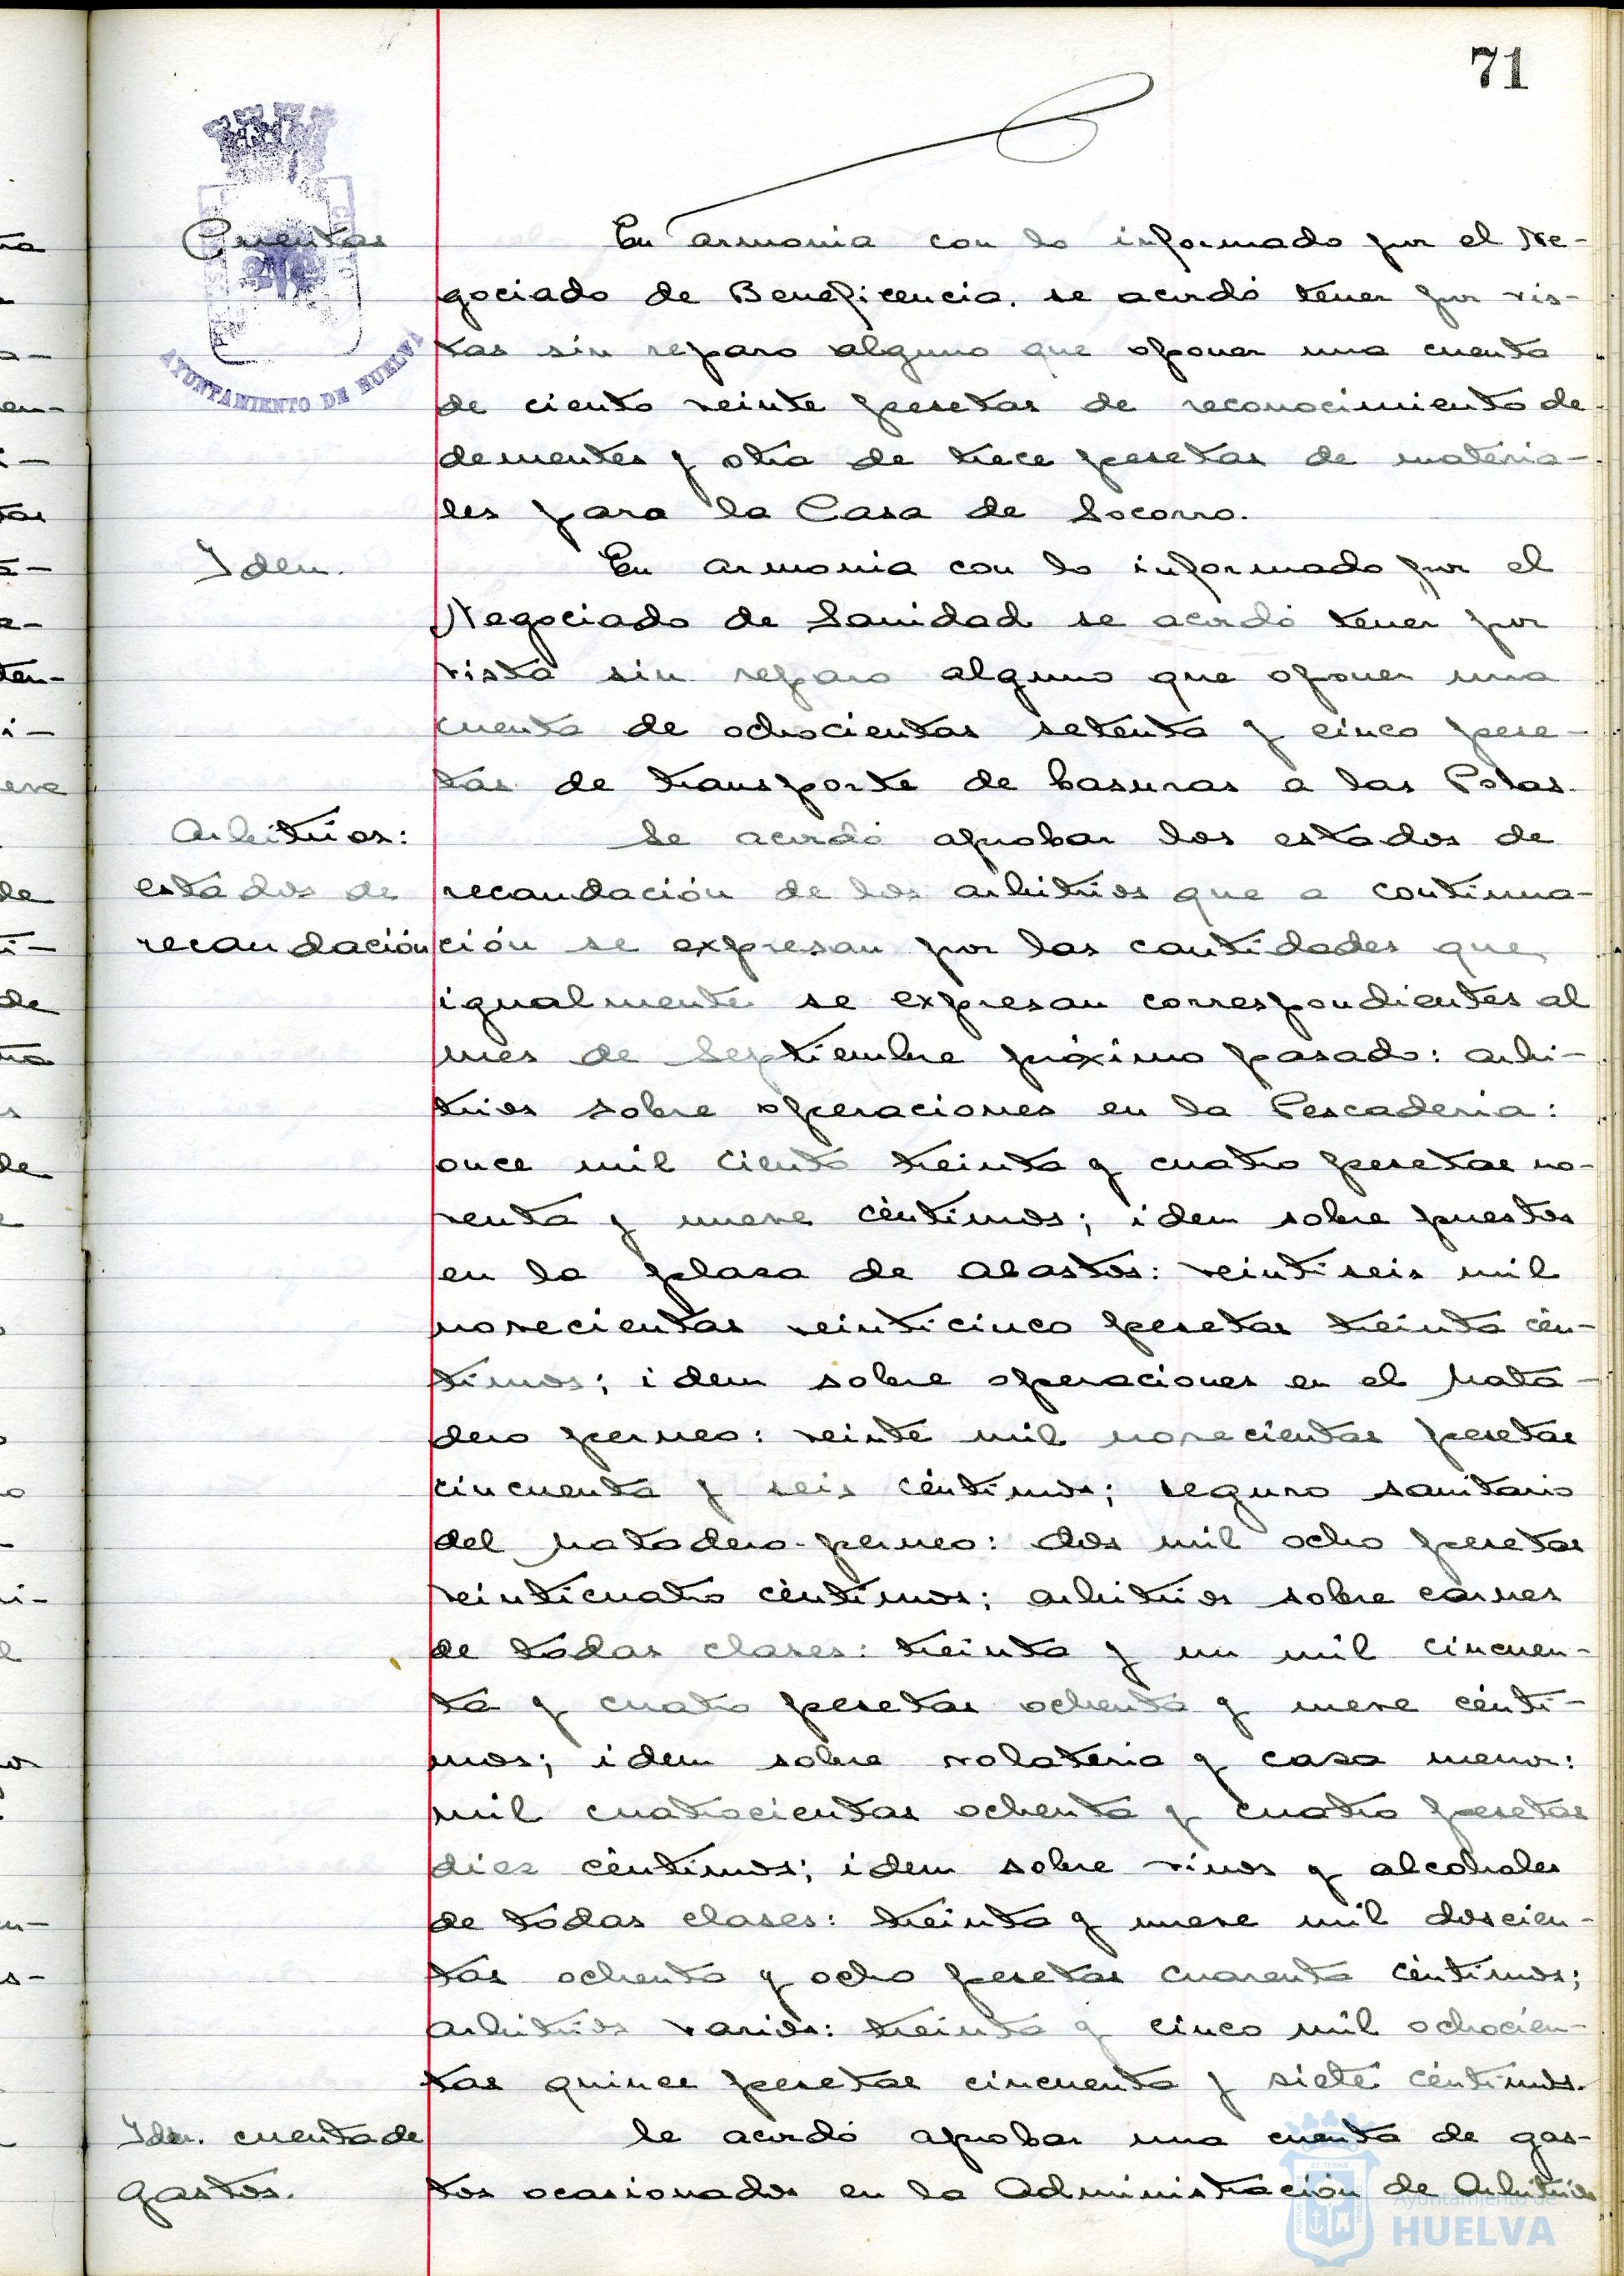 71
Cuentas
En armonia con lo informado por el Ne-
gociado de Beneficencia, se acordó tener por vis-
tas sin reparo alguno que oponer una cuenta
de ciento veinte pesetas de reconocimiento de
dementes y otra de trece pesetas de materia-
les para la Casa de Socorro.
Idem.
En armonia con lo informado por el
Negociado de Sanidad se acordó tener por
vista sin reparo alguno que oponer una
cuenta de ochocientas setenta y cinco pese-
tas de transporte de basuras a las Potas.
Arbitrios:
estados de
recaudación
Se acordó aprobar los estados de
recaudación de los arbitrios que a continua-
ción se expresan por las cantidades que
igualmente se expresan correspondientes al
mes de Septiembre próximo pasado: arbi-
trios sobre operaciones en la Pescaderia:
once mil ciento treinta y cuatro pesetas no-
venta y nueve céntimos; idem sobre puestos
en la plaza de Abastos: veintiseis mil
novecientas veinticinco pesetas treinta cén-
timos; idem sobre operaciones en el Mata-
dero perneo: veinte mil novecientas pesetas
cincuenta y seis céntimos; seguro sanitario
del Matadero-perneo: dos mil ocho pesetas
veinticuatro céntimos; arbitrios sobre carnes
de todas clases: treinta y un mil cincuen-
ta y cuatro pesetas ochenta y nueve cénti-
mos; idem sobre volateria y caza menor:
mil cuatrocientas ochenta y cuatro pesetas
diez céntimos; idem sobre vinos y alcoholes
de todas clases: treinta y nueve mil doscien-
tas ochenta y ocho pesetas cuarenta céntimos;
arbitrios varios: treinta y cinco mil ochocien-
tas quince pesetas cincuenta y siete céntimos.
Idem. cuenta de
gastos.
Se acordó aprobar una cuenta de gas-
tos ocasionados en la Administración de Arbitrios
AYUNTAMIENTO DE HUELVA
Ayuntamiento de
HUELVA